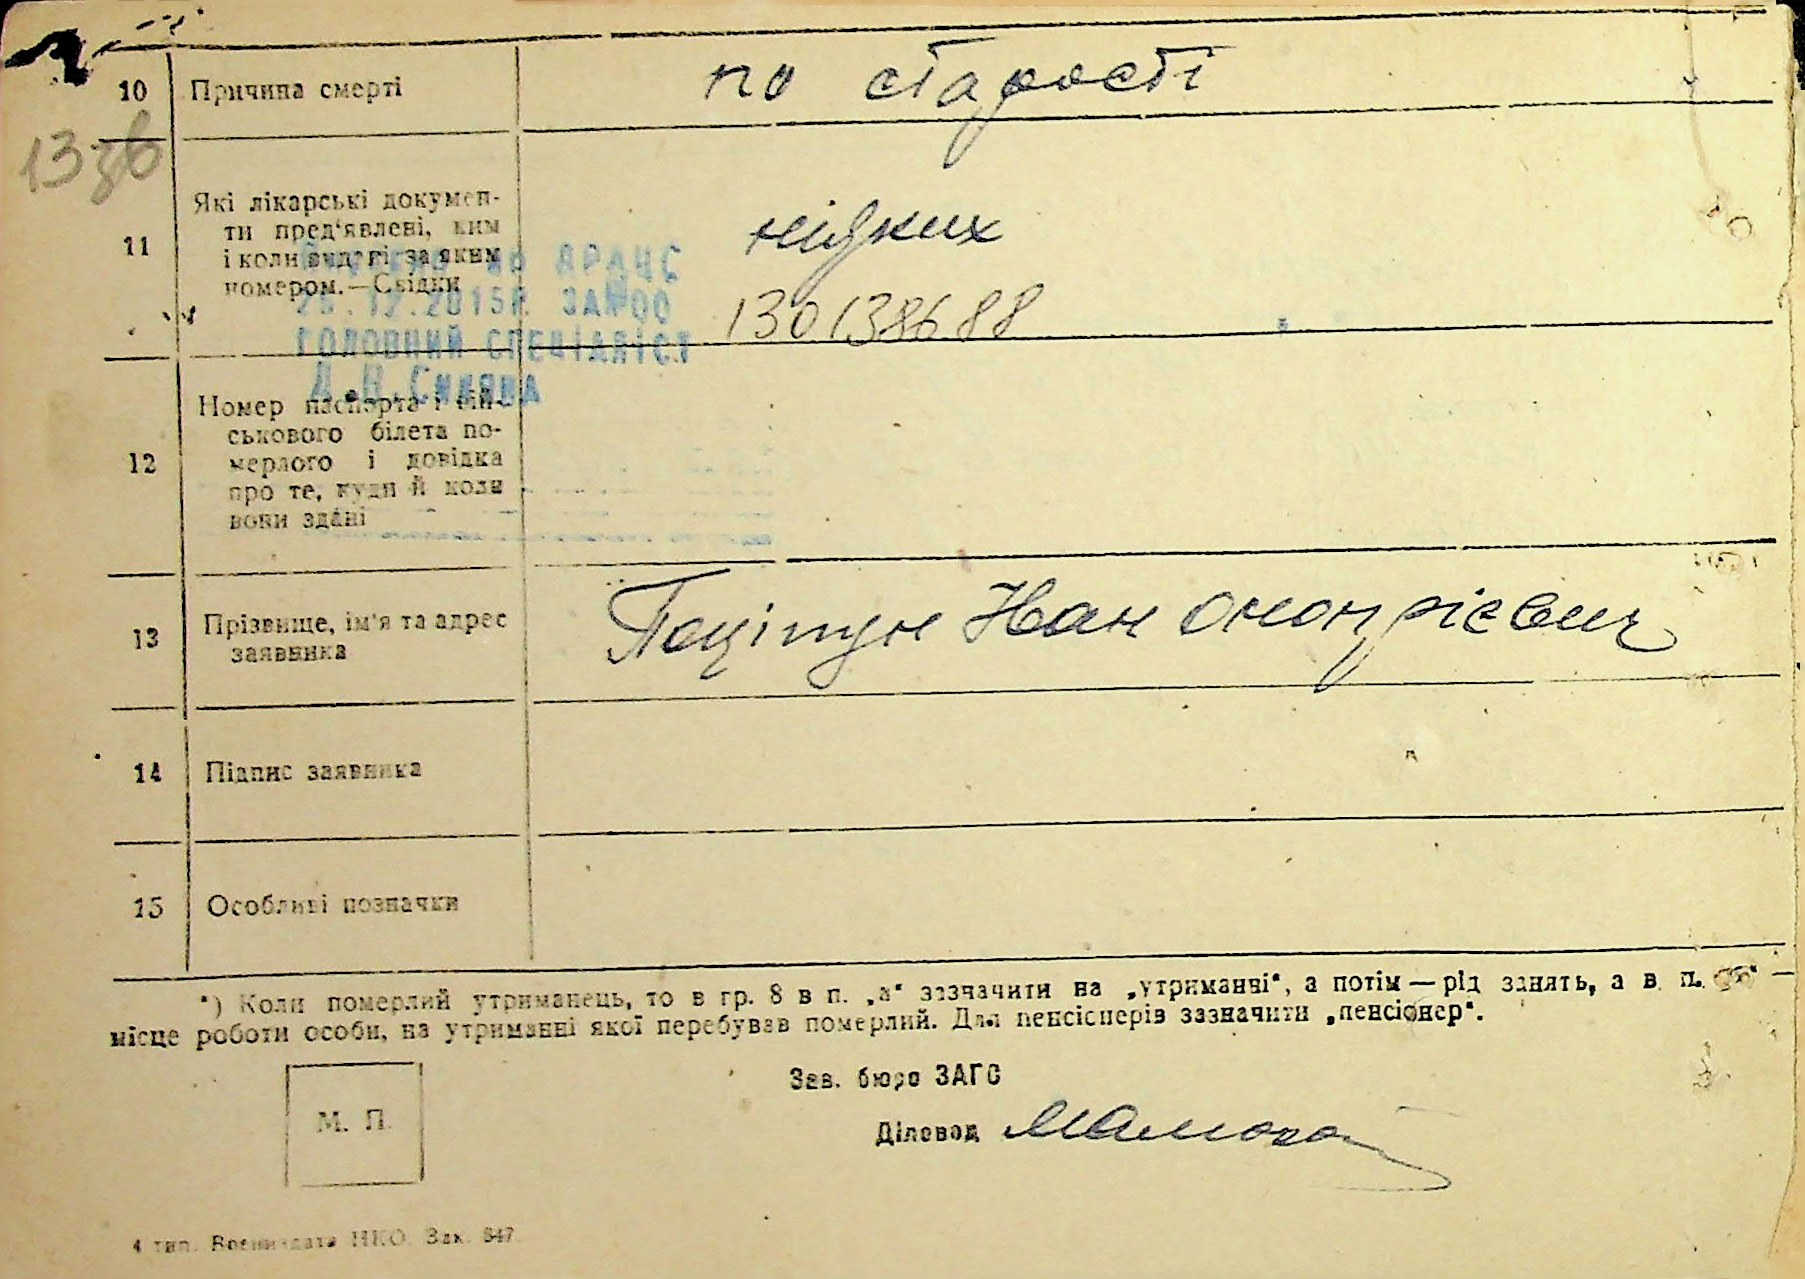 10 Причина смерті по старості
13 зв
11 Які лікарські докумен-
ти пред'явлені, ким
і коли видані за яким
номером.—Свідки
ніяких
130138688
ДРАЦС
29.12.2015р.
ГОЛОВНИЙ СПЕЦІАЛІСТ
12 Номер паспорта і вій-
ськового білета по-
мерлого і довідка
про те, куди й коли
вони здані
13 Прізвище, ім'я та адрес
заявника
Іван
14 Підпис заявника
15 Особливі позначки
*) Коли померлий утриманець, то в гр. 8 в п. „а" зазначити на „утриманні", а потім—рід занять, а в п. —
місце роботи особи, на утриманні якої перебував померлий. Для пенсіонерів зазначити „пенсіонер".
Зав. бюро ЗАГС
М. П.
Діловод
4 тип. Воениздата НКО. Зак. 647